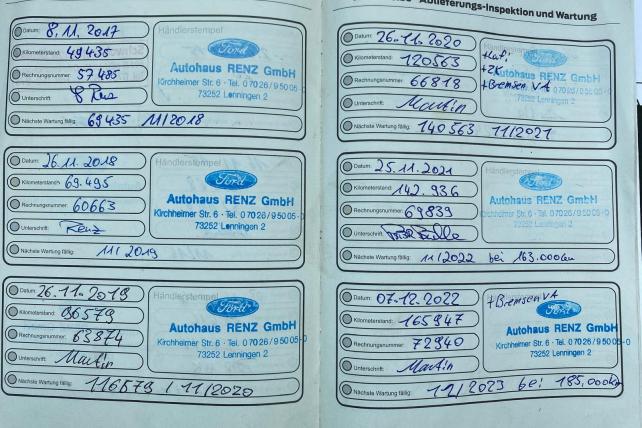 Ablieferungs-Inspektion und Wartung
Datum: 8.11.2017
Kilometerstand: 49435
Rechnungsnummer: 57485
Unterschrift: Renz
Nächste Wartung fällig: 69435 11/2018
Händlerstempel
Ford
Autohaus RENZ GmbH
Kirchheimer Str. 6 · Tel. 07026/95005-0
73252 Lenningen 2
Datum: 26.11.2018
Kilometerstand: 69.495
Rechnungsnummer: 60663
Unterschrift: Renz
Nächste Wartung fällig: 11/2019
Händlerstempel
Ford
Autohaus RENZ GmbH
Kirchheimer Str. 6 · Tel. 07026/95005-0
73252 Lenningen 2
Datum: 26.11.2019
Kilometerstand: 96579
Rechnungsnummer: 63874
Unterschrift: Martin
Nächste Wartung fällig: 116579 / 11/2020
Händlerstempel
Ford
Autohaus RENZ GmbH
Kirchheimer Str. 6 · Tel. 07026/95005-0
73252 Lenningen 2
Datum: 26.11.2020
Kilometerstand: 120563
Rechnungsnummer: 66818
Unterschrift: Martin
Nächste Wartung fällig: 140563 11/2021
+ZK
+Bremsen VA
Ford
Autohaus RENZ GmbH
Kirchheimer Str. 6 · Tel. 07026/95005-0
73252 Lenningen 2
Datum: 25.11.2021
Kilometerstand: 142.936
Rechnungsnummer: 69839
Unterschrift:
Nächste Wartung fällig: 11/2022 bei 163.000km
Händlerstempel
Ford
Autohaus RENZ GmbH
Kirchheimer Str. 6 · Tel. 07026/95005-0
73252 Lenningen 2
Datum: 07.12.2022
Kilometerstand: 165947
Rechnungsnummer: 72940
Unterschrift: Martin
Nächste Wartung fällig: 12/2023 bei 185.000km
+Bremsen VA
Ford
Autohaus RENZ GmbH
Kirchheimer Str. 6 · Tel. 07026/95005-0
73252 Lenningen 2